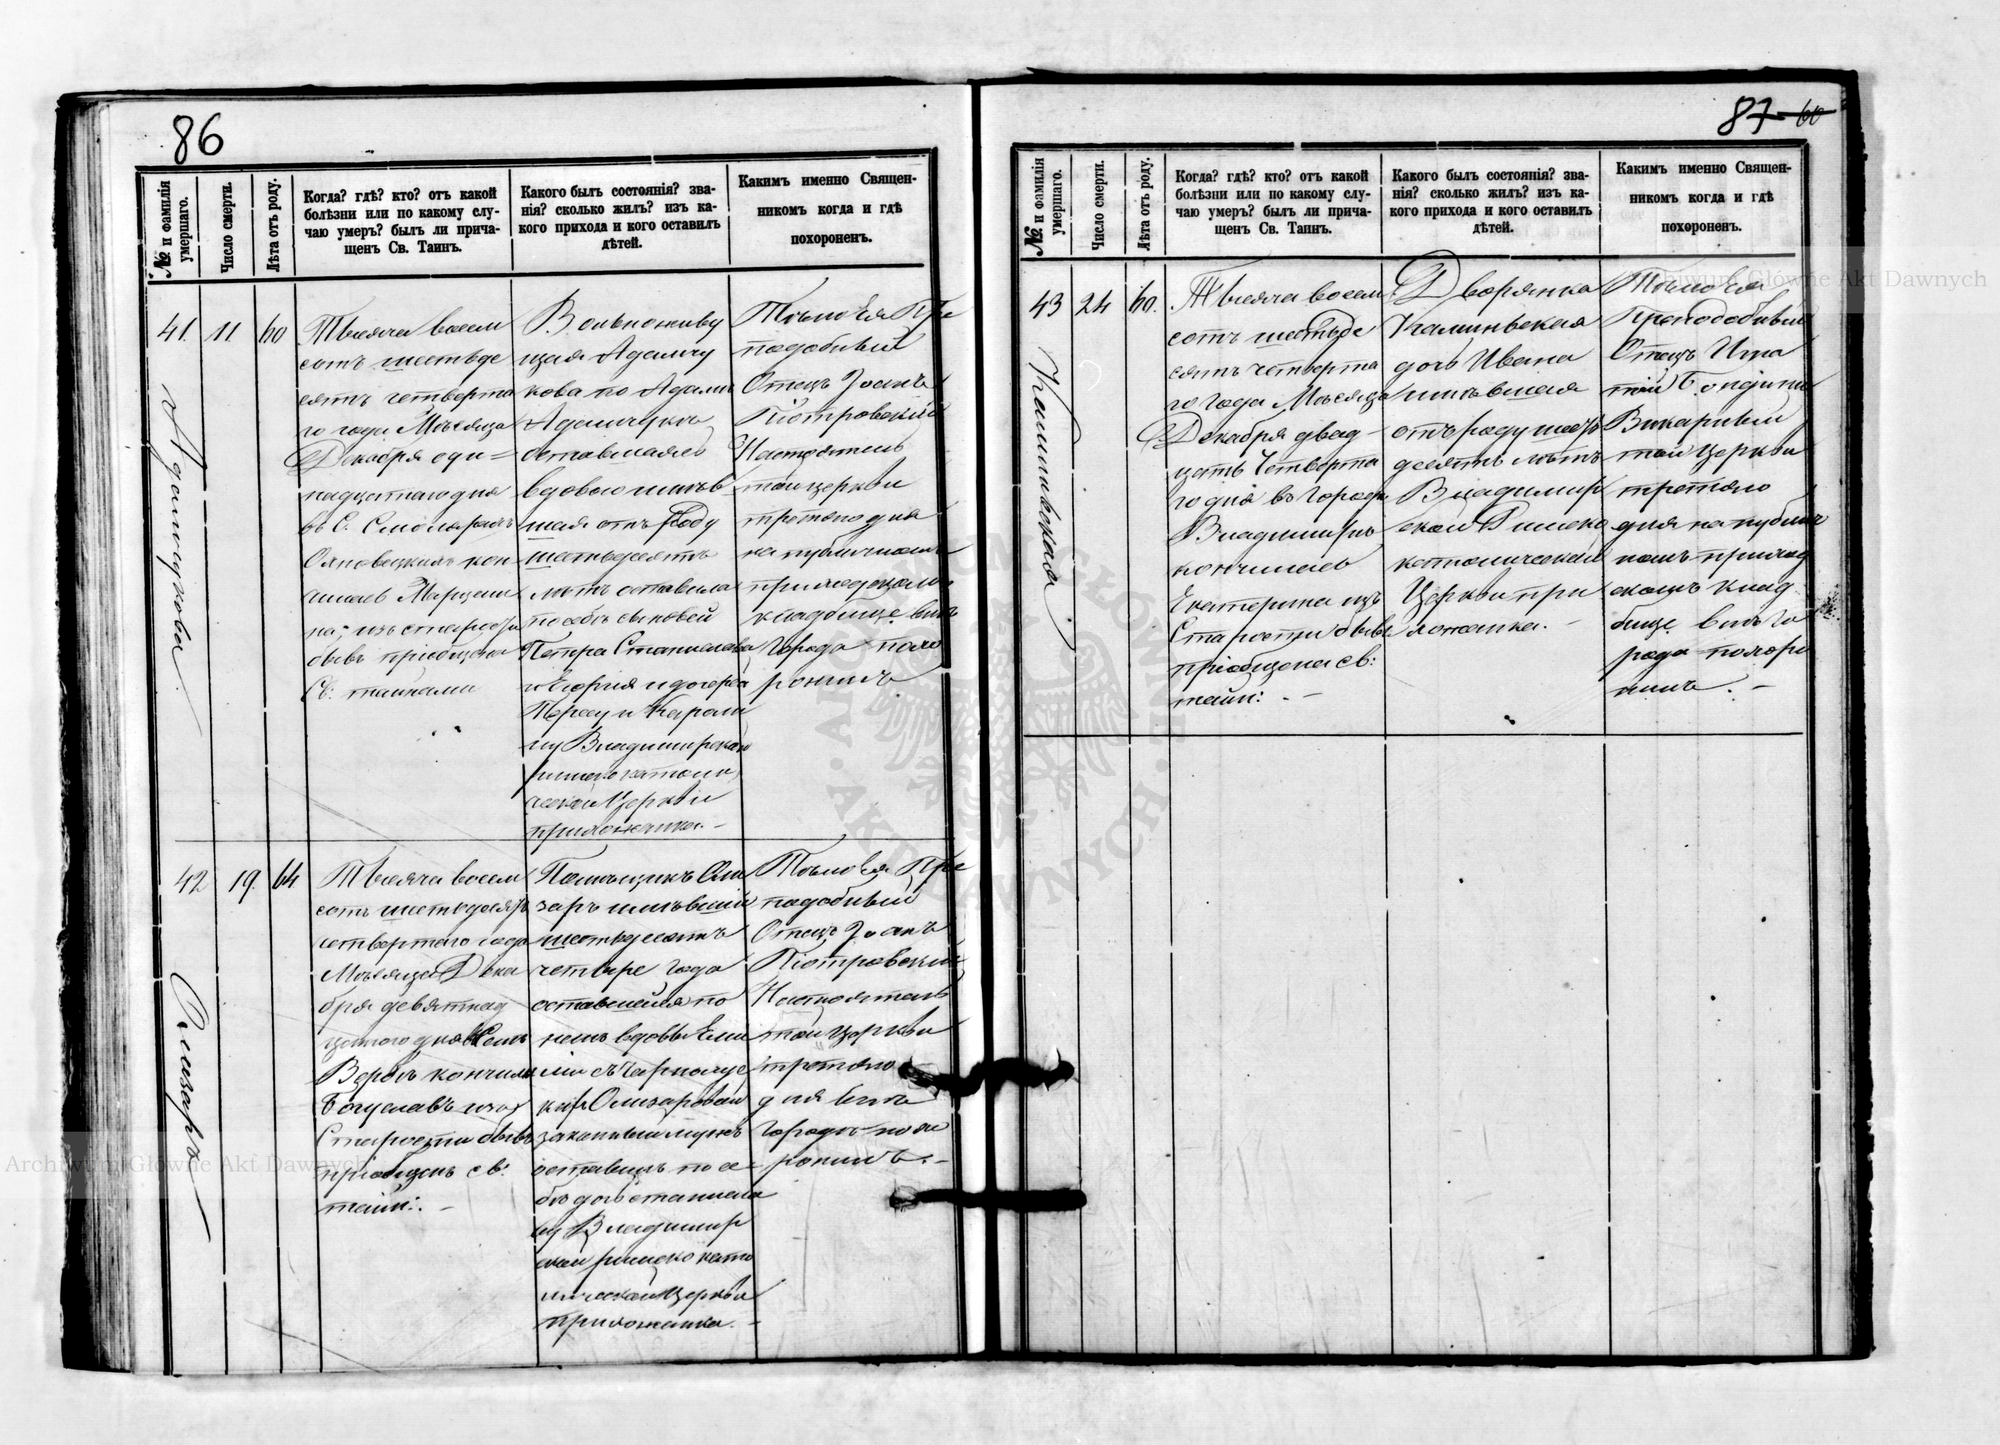 86
№ и фамилія умершаго.
Число смерти.
Лѣта отъ роду.
Когда? гдѣ? кто? отъ какой
болѣзни или по какому слу-
чаю умеръ? былъ ли прича-
щенъ Св. Таинъ.
Какого былъ состоянія? зва-
нія? сколько жилъ? изъ ка-
кого прихода и кого оставилъ
дѣтей.
Какимъ именно Священ-
никомъ когда и гдѣ
похороненъ.
41.
Адамчукова
11
60
Тысяча восем
сотъ шестьде
сятъ четверто
го года Мѣсяца
Декабря оди=
надцатаго дня
въ С.
на; изъ старости
бывъ пріобщена
Св: тайнами
Вольноживу
щая Адамчу
кова по Адамѣ
Адамчукѣ
оставшаяся
вдовою имѣв
шая отъ роду
шестьдесятъ
лѣтъ оставила
по себѣ сыновей
Петра Станислава
и дочерей
и Кароли
ну Владимирской
римско католи
ческой Церкви
прихожанка.-
Тѣло Ея Пре
подобный
Отецъ Іоанъ
Піотровскій
Настоятель
той церкви
третяго дня
на публичномъ
приходскомъ
кладбище внѣ
города похо
ронилъ
42
Олизаръ
19.
64
Тысяча восем
сотъ шестьдесятъ
четвертого года
Мѣсяца Дека
бря девятнад
цатого дня въ Селѣ
кончилъ
Богуславъ изъ
Старости бывъ
пріобщенъ св:
тайн:. -
Помѣщикъ Оли
заръ имѣвшій
шестьдесятъ
четыре года
оставшейся по
немъ вдовы Еми
ліи
Олизаровой
законный мужъ
оставилъ по се-
бѣ дочь Станисла
ву Владимир
ской римско като
лической Церкви
прихожанка. -
Тѣло Ея Пре
подобный
Отецъ Іоанъ
Піотровскій
Настоятель
той церкви
третяго
дня внѣ
города похо
ронилъ. -
87 60
№ и фамилія умершаго.
Число смерти.
Лѣта отъ роду.
Когда? гдѣ? кто? отъ какой
болѣзни или по какому слу-
чаю умеръ? былъ ли прича-
щенъ Св. Таинъ.
Какого былъ состоянія? зва-
нія? сколько жилъ? изъ ка-
кого прихода и кого оставилъ
дѣтей.
Какимъ именно Священ-
никомъ когда и гдѣ
похороненъ.
43
Каминьская
24
60.
Тысяча восем
сотъ шестьде
сятъ четверта
го года Мѣсяца
Декабря двад-
цать Четверта
го дня въ городѣ
Владимирѣ
кончилась
Екатерина изъ
Старости бывъ
пріобщена св:
тайн: . -
Дворянка
Каминьская
дочь Ивана
имѣвшая
отъ роду шесть
десятъ лѣтъ
Владимир
ской Римско
католической
Церкви при
хожанка. -
Тѣло Ея
Преподобный
Отецъ Игна
тій
Викарный
той церкви
третяго
дня на публич
номъ приход
скомъ клад
бище внѣ го
рода похоро
нилъ. -
Archiwum Główne Akt Dawnych
Archiwum Główne Akt Dawnych